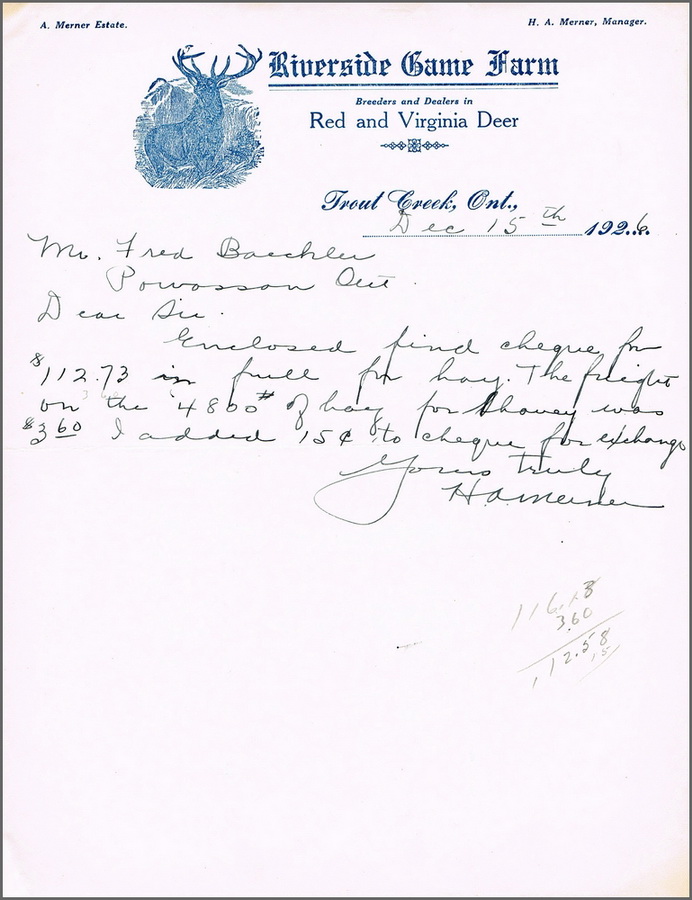 A. Merner Estate.
H. A. Merner, Manager.
Riverside Game Farm
Breeders and Dealers in
Red and Virginia Deer
Trout Creek, Ont.,
Dec 15th 1926.
Mr. Fred Baechler
Powassan Ont.
Dear Sir.
Enclosed find cheque for
$112.73 in full for hay. The freight
on the 4800# of hay for was
$3.60 I added 15¢ to cheque for exchange
Yours truly
H A Merner
116.18
3.60
112.58
15